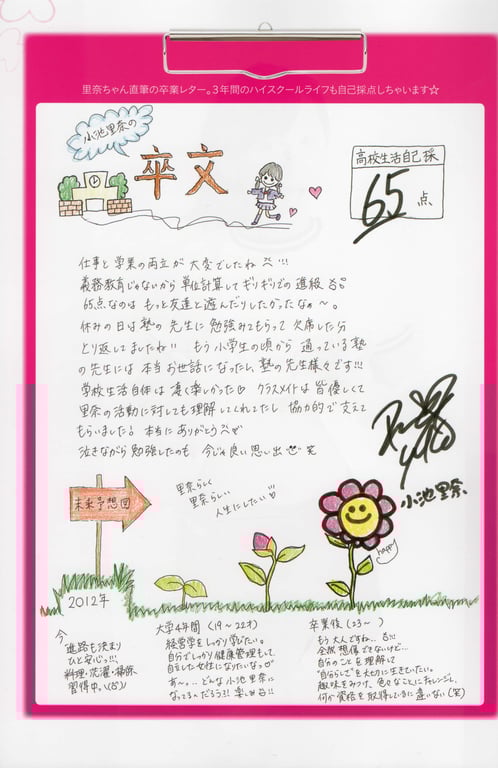 里奈ちゃん直筆の卒業レター。3年間のハイスクールライフも自己採点しちゃいます☆
小池里奈の
卒文
高校生活自己採
65点
仕事と学業の両立が大変でしたね!!!
義務教育じゃないから単位計算してギリギリでの進級
65点なのはもっと友達と遊んだりしたかったなぁ〜。
休みの日は塾の先生に勉強みてもらって欠席した分
とり返してましたね!! もう小学生の頃から通っている塾
の先生には本当お世話になったし、塾の先生様々です!!!
学校生活自体は凄く楽しかった♡ クラスメイトは皆優しくて
里奈の活動に対しても理解してくれてたし協力的で支えて
もらいました。本当にありがとう
泣きながら勉強したのも今じゃ良い思い出 笑
里奈らしく
里奈らしい
人生にしたい!!!
小池里奈
未来予想図
happy
2012年
今
進路も決まり
ひと安心っ!!!
料理・洗濯・掃除
習得中。
大学4年間(19〜22才)
経営学をしっかり学びたい。
自分でしっかり健康管理もして
自立した女性になりたいなっ
あ〜。…どんな小池里奈に
なってるんだろう?! 楽しみ!!
卒業後(23〜)
もう大人ですね…
全然想像できないけど…
自分のことを理解して
"自分らしさ"を大切に生きていたい。
趣味をみつけ、色々なことにチャレンジし、
何か資格を取得しているに違いない(笑)